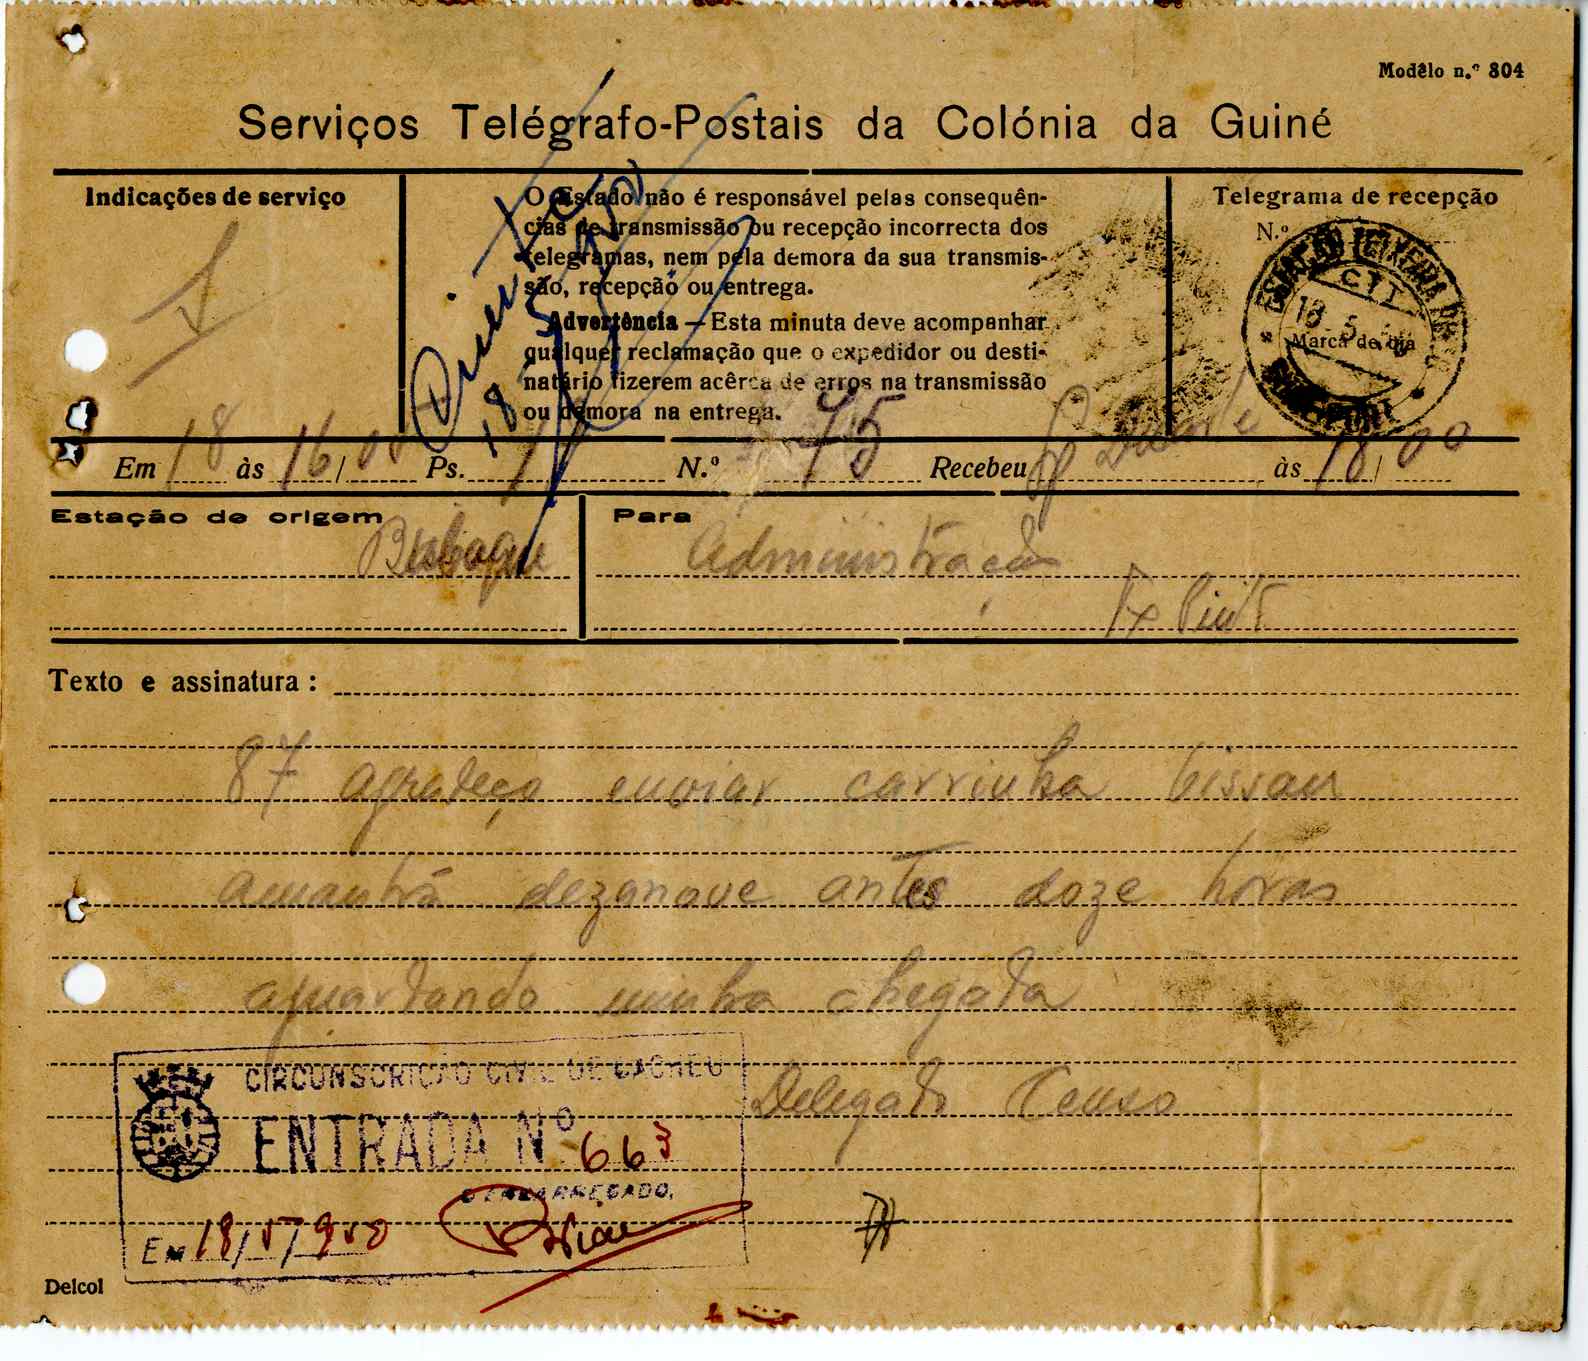 Modêlo n.º 804
Serviços Telégrafo-Postais da Colónia da Guiné
Indicações de serviço
O Estado não é responsável pelas consequên-
cias de transmissão ou recepção incorrecta dos
telegramas, nem pela demora da sua transmis-
são, recepção ou entrega.
Advertência — Esta minuta deve acompanhar
qualquer reclamação que o expedidor ou desti-
natário fizerem acêrca de erros na transmissão
ou demora na entrega.
18 5 950
Telegrama de recepção
N.º
ESTAÇÃO TEIXEIRA
CTT
18 5
Marca de dia
Em 18 às 16/00 Ps. N.º 75 Recebeu Duarte às 18/00
Estação de origem
Para
Administração
Texto e assinatura :
87 agradeço enviar carrinha bissau
amanhã dezanove antes doze horas
aguardando minha chegada
Delegado Censo
CIRCUNSCRIÇÃO CIVIL DE CACHEU
ENTRADA Nº 663
O ENCARREGADO,
Em 18/5/950
Delcol